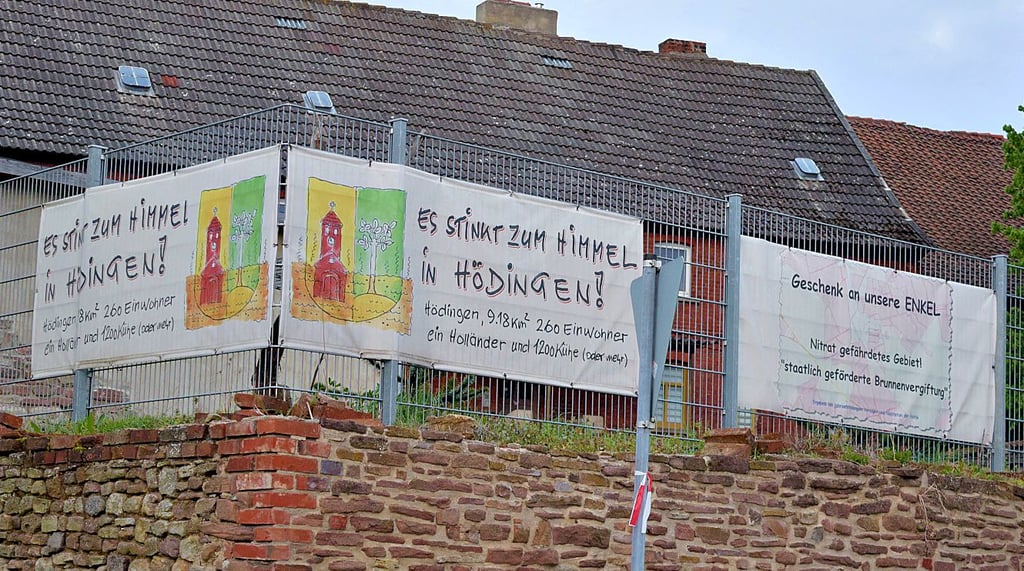 ES STINKT ZUM HIMMEL
IN HÖDINGEN!
Hödingen, 8km² 260 Einwohner
ein Holländer und 1200 Kühe (oder mehr)
ES STINKT ZUM HIMMEL
IN HÖDINGEN!
Hödingen, 9.18 km² 260 Einwohner
ein Holländer und 1200 Kühe (oder mehr)
Geschenk an unsere ENKEL
Nitrat gefährdetes Gebiet!
"staatlich geförderte Brunnenvergiftung"